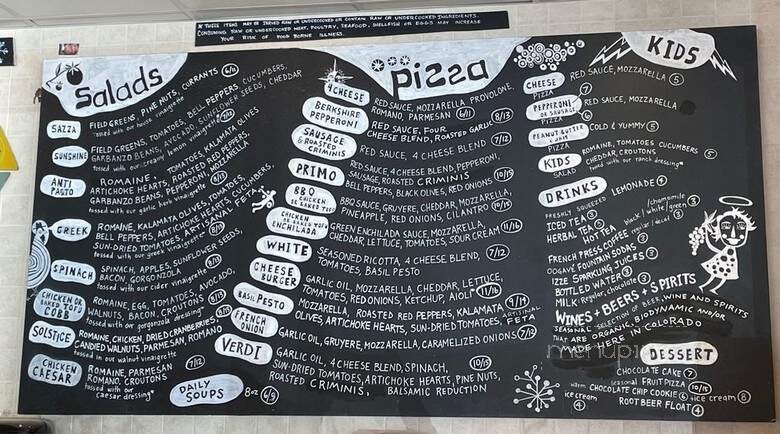 * THESE ITEMS MAY BE SERVED RAW OR UNDERCOOKED OR CONTAIN RAW OR UNDERCOOKED INGREDIENTS.
CONSUMING RAW OR UNDERCOOKED MEAT, POULTRY, SEAFOOD, SHELLFISH OR EGGS MAY INCREASE
YOUR RISK OF FOOD BORNE ILLNESS.
Salads
SAZZA
FIELD GREENS, PINE NUTS, CURRANTS 6/11
tossed with our house vinaigrette
SUNSHINE
FIELD GREENS, TOMATOES, BELL PEPPERS, CUCUMBERS,
GARBANZO BEANS, AVOCADO, SUNFLOWER SEEDS, CHEDDAR
tossed with our creamy lemon vinaigrette
ANTI PASTO
ROMAINE, TOMATOES, KALAMATA OLIVES
ARTICHOKE HEARTS, ROASTED RED PEPPERS,
GARBANZO BEANS, PEPPERONI, MOZZARELLA
tossed with our garlic herb vinaigrette
GREEK
ROMAINE, KALAMATA OLIVES, TOMATOES,
BELL PEPPERS, ARTICHOKE HEARTS, CUCUMBERS,
SUN-DRIED TOMATOES, ARTISANAL FETA
tossed with our greek vinaigrette 8/10
SPINACH
SPINACH, APPLES, SUNFLOWER SEEDS,
BACON, GORGONZOLA
tossed with our cider vinaigrette
CHICKEN OR BAKED TOFU COBB
ROMAINE, EGG, TOMATOES, AVOCADO,
WALNUTS, BACON, CROUTONS
tossed with our gorgonzola dressing*
SOLSTICE
ROMAINE, CHICKEN, DRIED CRANBERRIES,
CANDIED WALNUTS, PARMESAN, ROMANO
tossed in our walnut vinaigrette
CHICKEN CAESAR
ROMAINE, PARMESAN 7/12
ROMANO, CROUTONS
tossed with our
caesar dressing*
DAILY SOUPS
8oz 6/9
Pizza
4 CHEESE
RED SAUCE, MOZZARELLA, PROVOLONE,
ROMANO, PARMESAN 6/11
BERKSHIRE PEPPERONI
RED SAUCE, FOUR
CHEESE BLEND, ROASTED GARLIC 8/13
SAUSAGE & ROASTED CRIMINIS
RED SAUCE, 4 CHEESE BLEND 7/12
PRIMO
RED SAUCE, 4 CHEESE BLEND, PEPPERONI,
SAUSAGE, ROASTED CRIMINIS
BELL PEPPERS, BLACK OLIVES, RED ONIONS 10/15
BBQ CHICKEN OR BAKED TOFU
BBQ SAUCE, GRUYERE, CHEDDAR, MOZZARELLA,
PINEAPPLE, RED ONIONS, CILANTRO 10/15
CHICKEN OR BAKED TOFU ENCHILADA
GREEN ENCHILADA SAUCE, MOZZARELLA,
CHEDDAR, LETTUCE, TOMATOES, SOUR CREAM 11/16
WHITE
SEASONED RICOTTA, 4 CHEESE BLEND,
TOMATOES, BASIL PESTO 7/12
CHEESE BURGER
GARLIC OIL, MOZZARELLA, CHEDDAR, LETTUCE,
TOMATOES, RED ONIONS, KETCHUP, AIOLI* 11/16
BASIL PESTO
MOZZARELLA, ROASTED RED PEPPERS, KALAMATA 9/14
OLIVES ARTICHOKE HEARTS, SUN-DRIED TOMATOES, ARTISANAL FETA
FRENCH ONION
GARLIC OIL, GRUYERE, MOZZARELLA, CARAMELIZED ONIONS 7/12
VERDI
GARLIC OIL, 4 CHEESE BLEND, SPINACH, 10/15
SUN-DRIED TOMATOES, ARTICHOKE HEARTS, PINE NUTS,
ROASTED CRIMINIS, BALSAMIC REDUCTION
KIDS
CHEESE PIZZA
RED SAUCE, MOZZARELLA 5
PEPPERONI OR SAUSAGE PIZZA 7
RED SAUCE, MOZZARELLA
PEANUT BUTTER & JAM PIZZA
COLD & YUMMY 5
KIDS SALAD
ROMAINE, TOMATOES CUCUMBERS
CHEDDAR, CROUTONS 5
tossed with our ranch dressing*
DRINKS
FRESHLY SQUEEZED LEMONADE 4
ICED TEA 3
HERBAL TEA 3
HOT TEA chamomile
black/white/green 3
FRENCH PRESS COFFEE regular/decaf 3
OOGAVE FOUNTAIN SODAS 3
IZZE SPARKLING JUICES
BOTTLED WATER 3
MILK Regular, Chocolate
WINES + BEERS + SPIRITS
SEASONAL SELECTION OF BEER, WINE AND SPIRITS
THAT ARE ORGANIC, BIODYNAMIC AND/OR
MADE HERE IN COLORADO
menupix
DESSERT
CHOCOLATE CAKE 7
SEASONAL FRUIT PIZZA 10/15
warm CHOCOLATE CHIP COOKIE 6 + ice cream 8
ice cream 4
ROOT BEER FLOAT 4